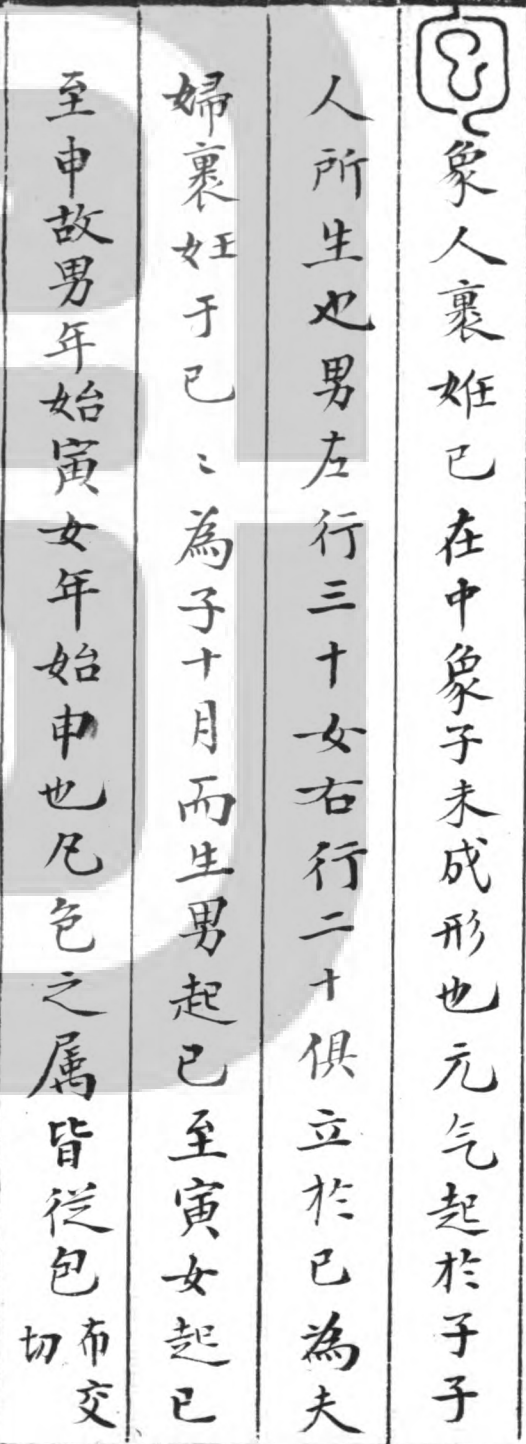 象人裹妊巳在中象子未成形也元气起於子子
人所生也男左行三十女右行二十俱立於巳為夫
婦裹妊于巳〻為子十月而生男起巳至寅女起巳
至申故男年始寅女年始申也凡包之属皆從包布交切